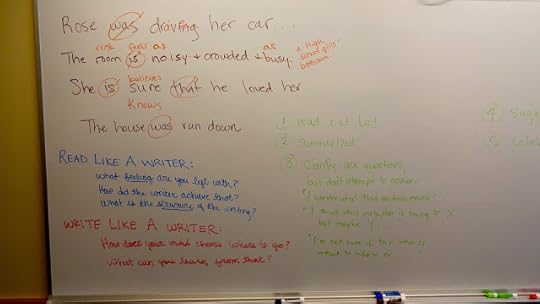 Rose was driving her car...
rink feels as as a high
The room is noisy + crowded + busy. school girls'
bathroom
believes
She is sure that he loved her
Knows
The house was run down
READ LIKE A WRITER:
What feeling are you left with?
How did the writer achieve that?
What is the structure of the writing?
WRITE LIKE A WRITER:
How does your mind choose where to go?
What can you learn from that?
1 read out
2 Summarized
3 Clarify ask questions,
but don't attempt to answer
"I wonder what this sentence means"
"I think this narrator is trying to X,
but maybe Y
"I'm not sure if this
4
5